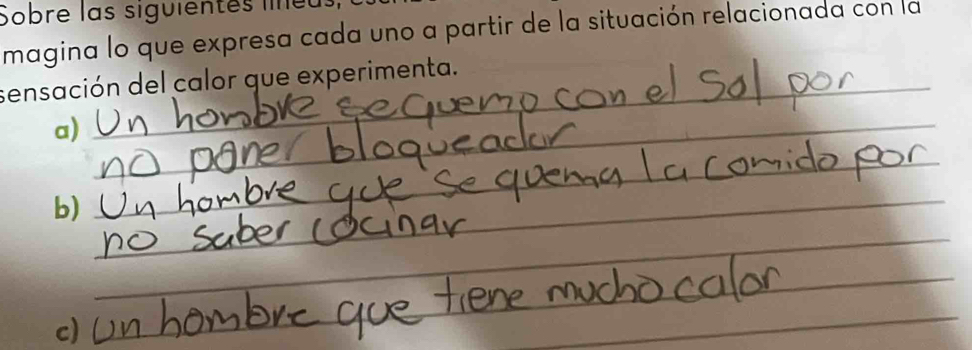 Sobre las siguientes líneas,
magina lo que expresa cada uno a partir de la situación relacionada con la
sensación del calor que experimenta.
a) Un hombre se quemo con el Sol por
no poner bloqueador
b) Un hombre que se quema la comida por
no saber cocinar
c) un hombre que tiene mucho calor